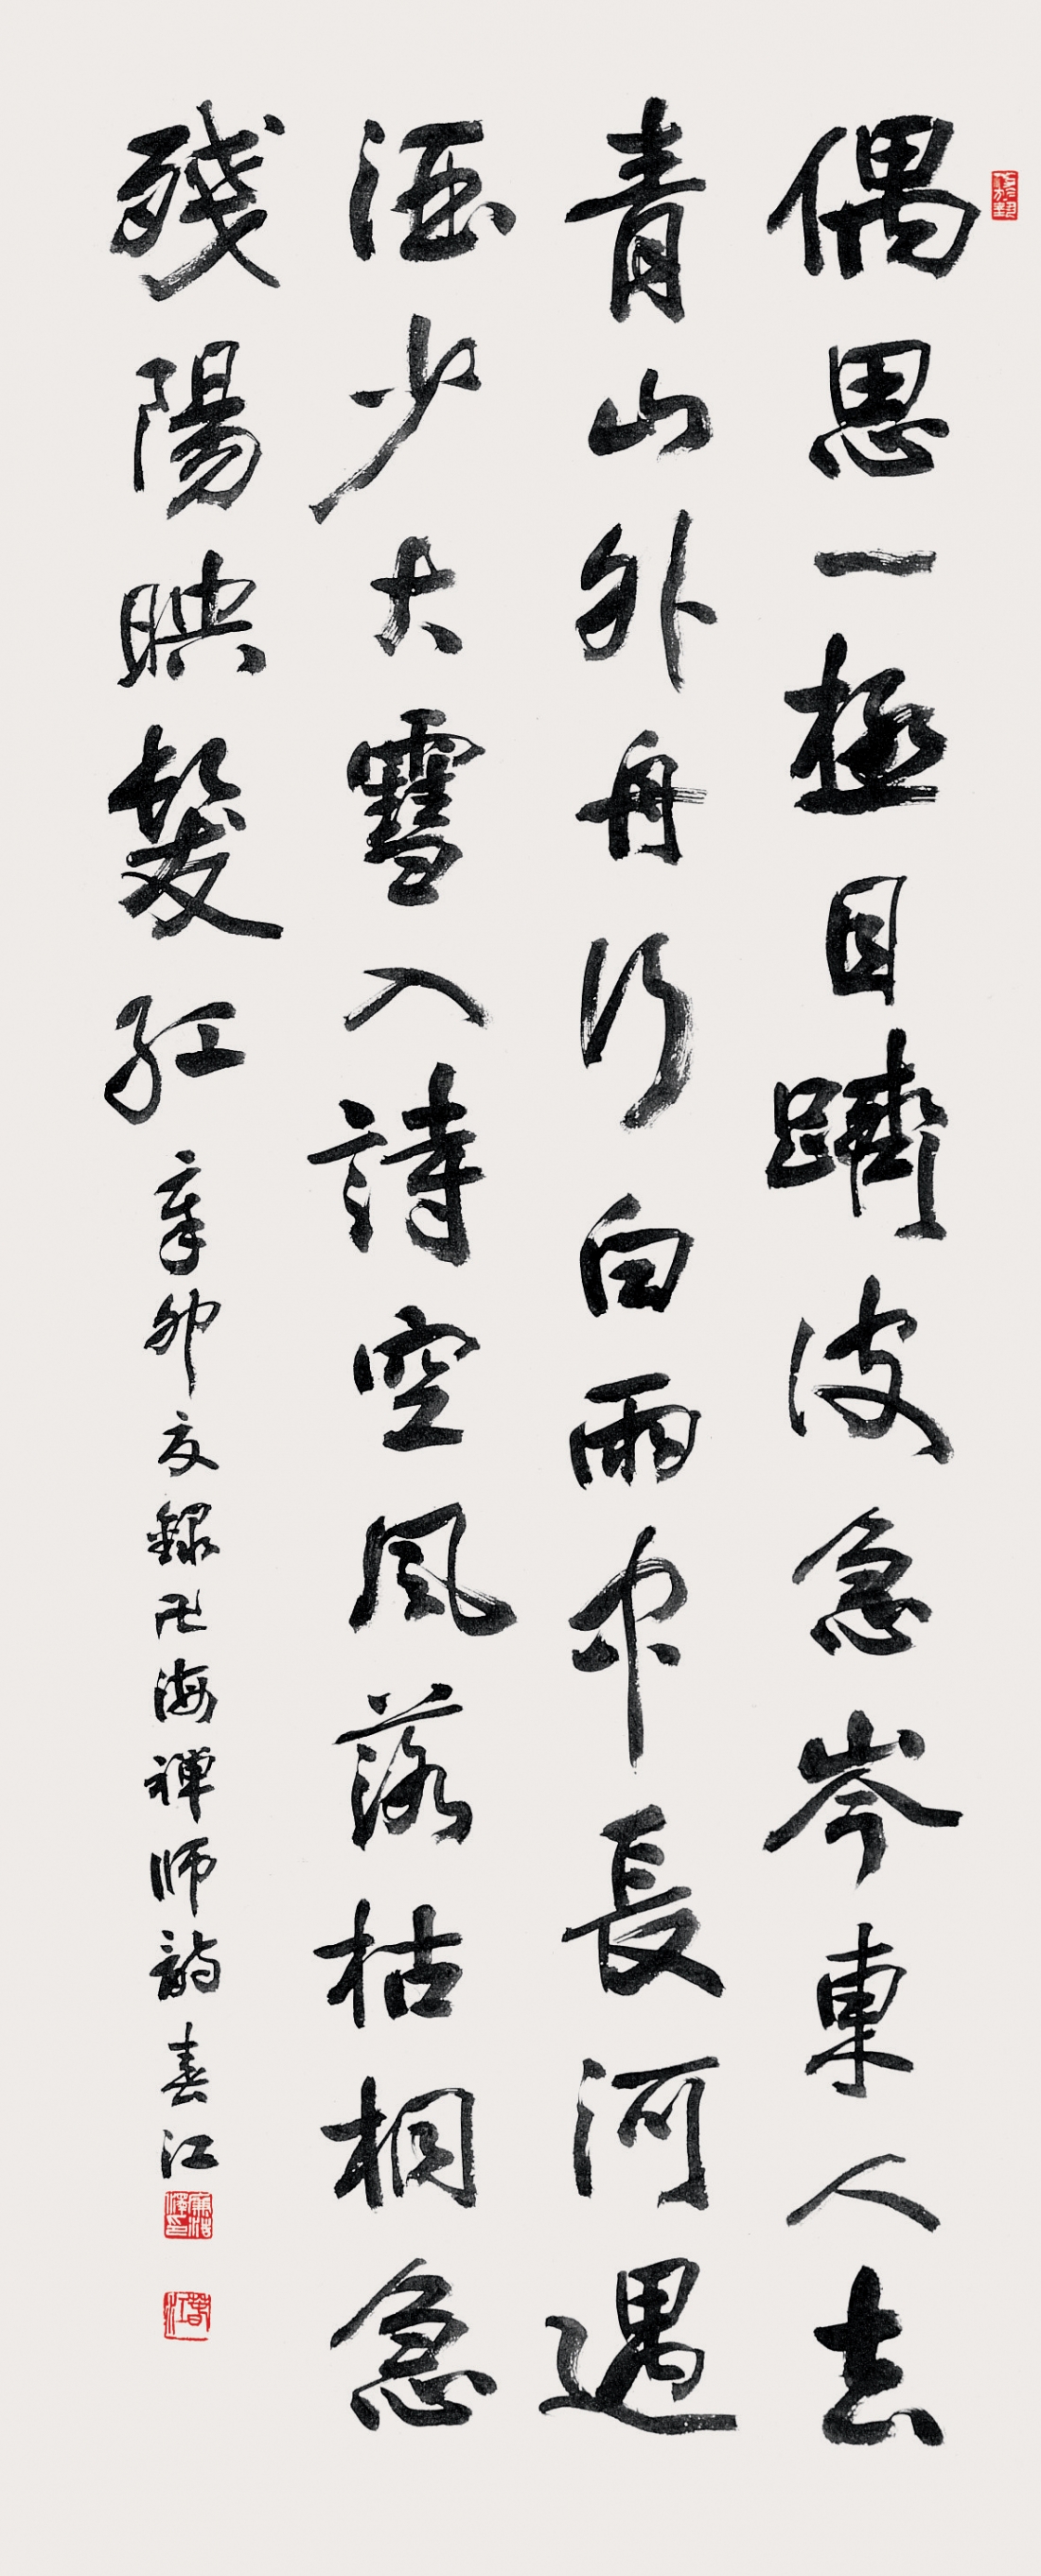 偶思一極目躋彼急岑東人去
青山外舟行白雨中長河遇
酒少大雪入詩空風落枯桐急
殘陽映鬢紅
辛卯夏錄卍海禪師詩春江